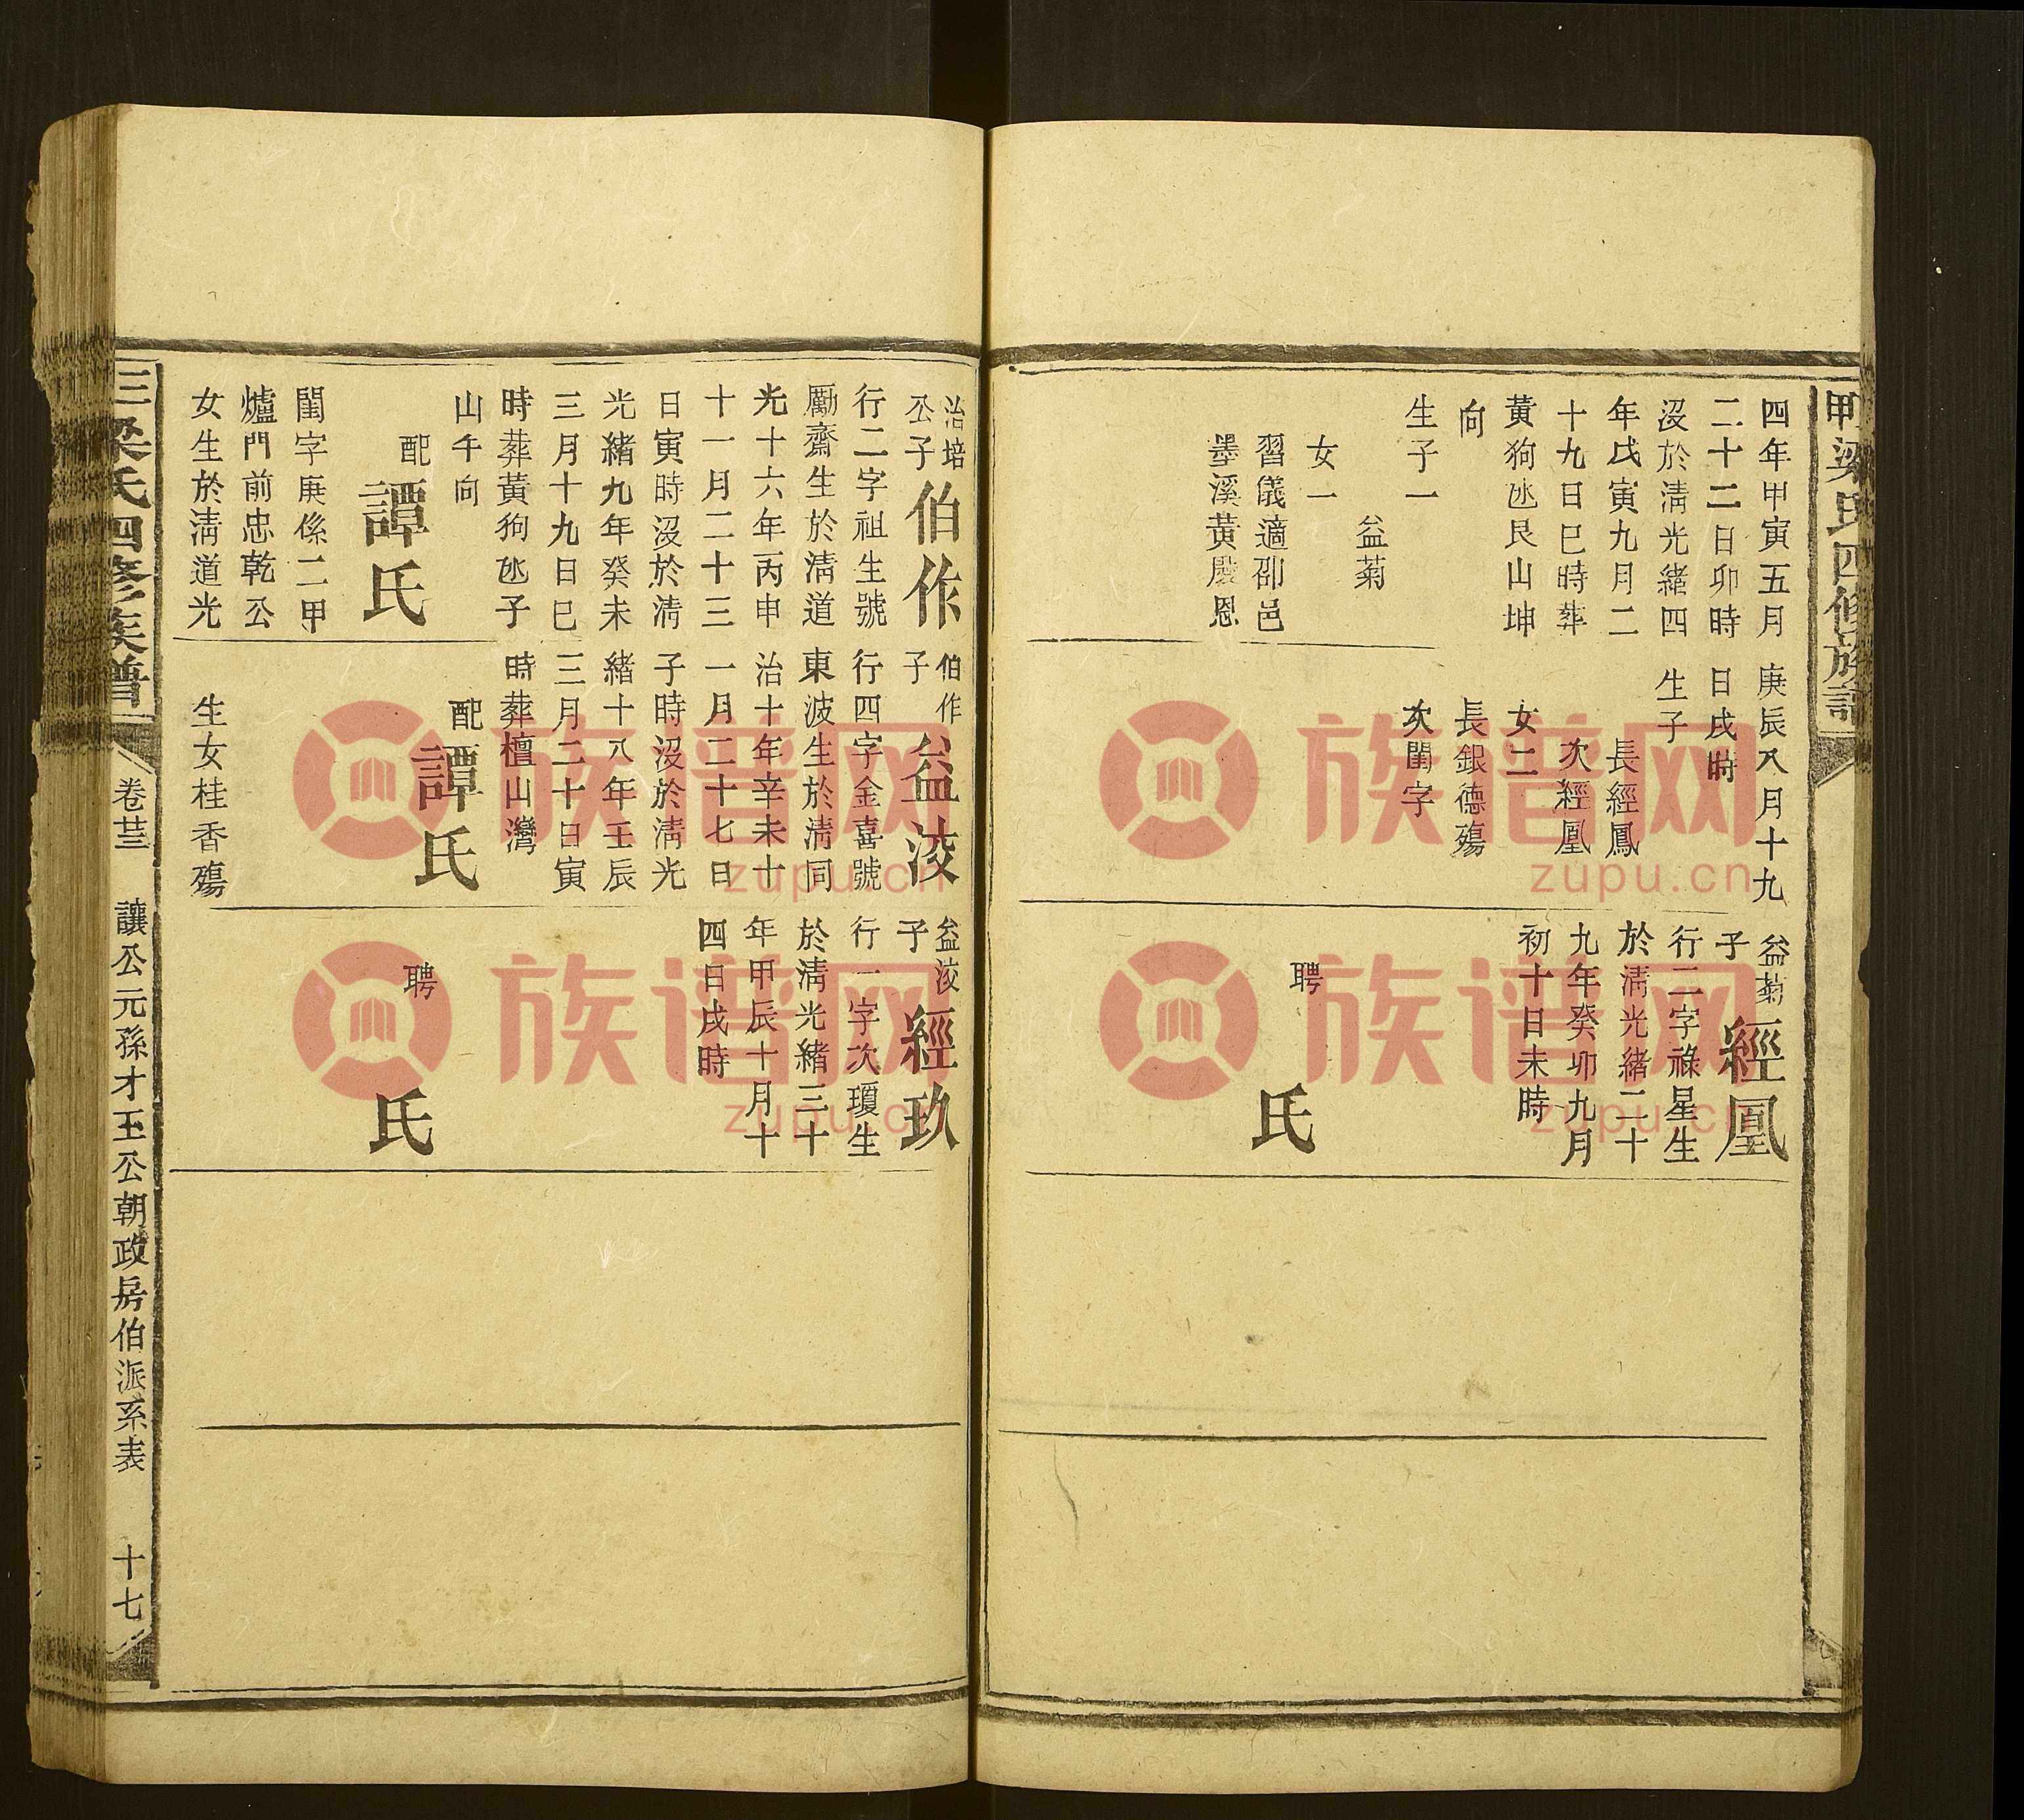 四年甲寅五月
二十二日卯時
沒於淸光緒四
年戊寅九月二
十九日巳時葬
黃狗氹艮山坤
向
生子一
益菊
女一
習儀適邵邑
墨溪黃殿恩
庚辰八月十九
日戌時
生子
長經鳳
次經凰
女二
長銀德殤
次閨字
益菊
子
經凰
行二字祿星生
於淸光緒二十
九年癸卯九月
初十日未時
聘
氏
治培
公子
伯作
行二字祖生號
勵齋生於淸道
光十六年丙申
十一月二十三
日寅時沒於淸
光緒九年癸未
三月十九日巳
時葬黃狗氹子
山午向
配
譚氏
閨字庚係二甲
爐門前忠乾公
女生於淸道光
伯作
子
益淩
行四字金喜號
東波生於淸同
治十年辛未十
一月二十七日
子時沒於淸光
緒十八年壬辰
三月二十日寅
時葬檀山灣
配
譚氏
生女桂香殤
益淩
子
經玖
行一字次瓊生
於淸光緒三十
年甲辰十月十
四日戌時
聘
氏
梁氏四修族譜
卷廿三
讓公元孫才玉公朝政房伯派系表
十七
族谱网
zupu.cn
族谱网
zupu.cn
族谱网
zupu.cn
族谱网
zupu.cn